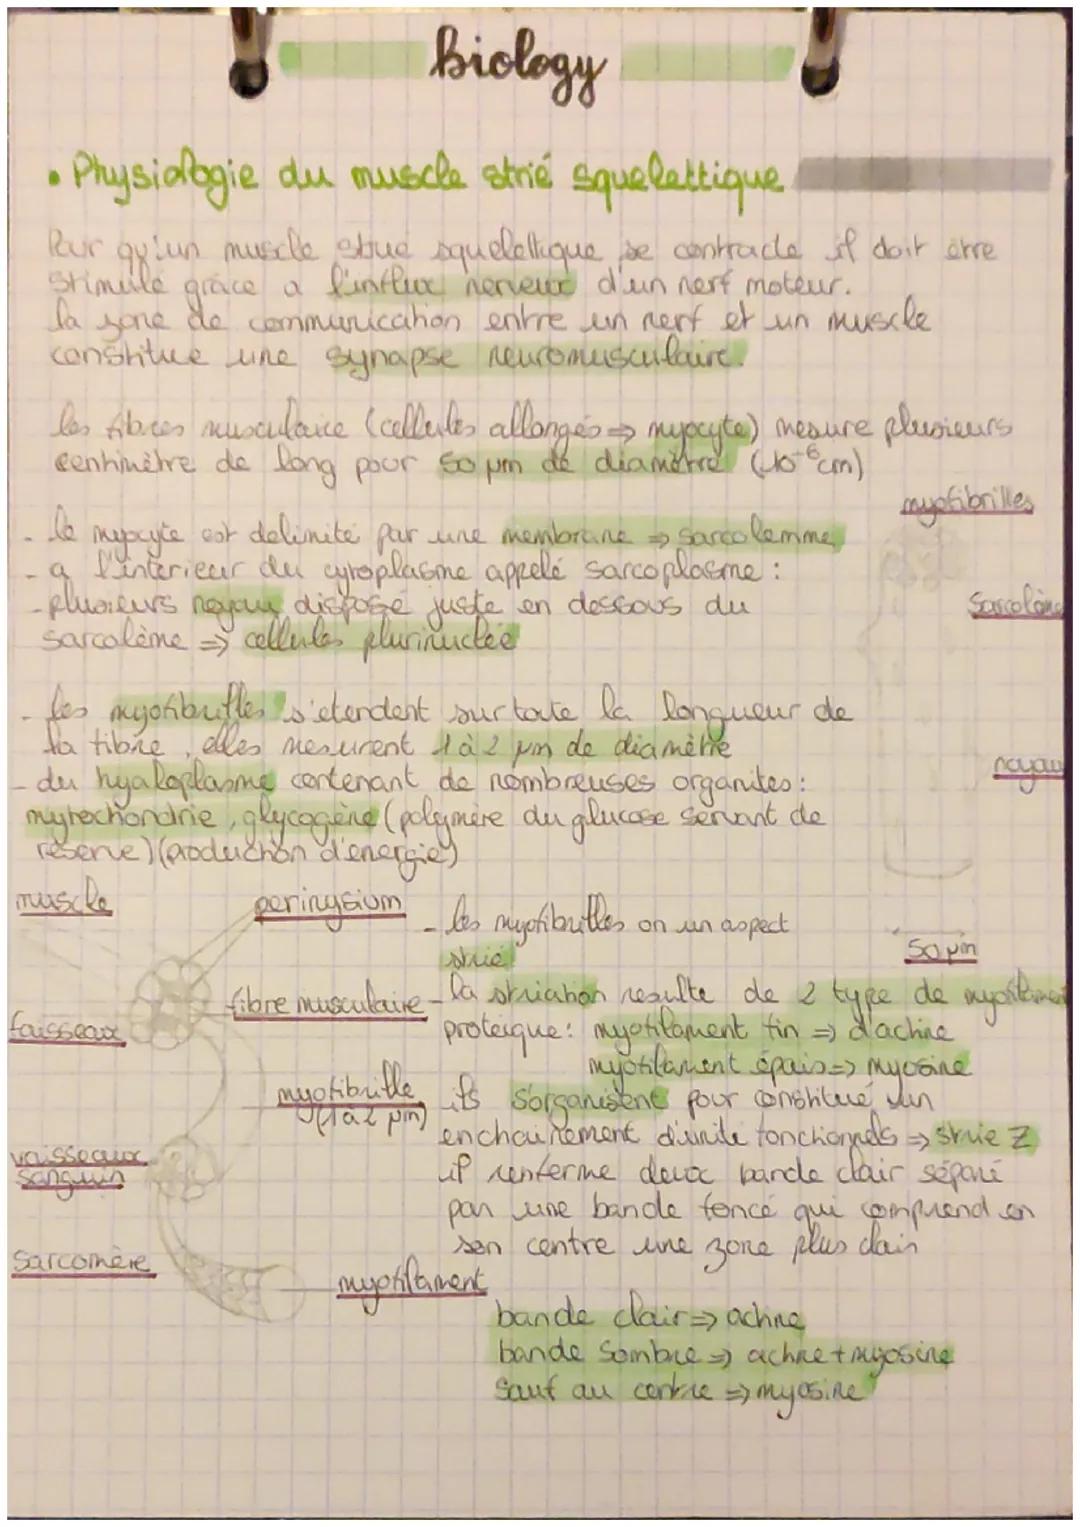 biology
• Physiologie du muscle strié squelettique
Pour qu'un muscle strié squelettique se contracte il doit être
stimulé grâce a l'influx nerveux d'un nerf moteur.
la zone de communication entre un nerf et un muscle
constitue une synapse neuromusculaire.
les fibres musculaire (cellules allongés => myocyte) mesure plusieurs
centimètre de long pour 50 µm de diamètre (10⁻⁶cm)
myofibrilles
- le myocyte est delimité par une membrane => sarcolemme
- a l'interieur du cytoplasme appelé sarcoplasme :
- plusieurs noyau disposé juste en dessous du
sarcolème => cellules plurinuclée
Sarcolème
- les myofibrilles s'etendent sur toute la longueur de
la fibre, elles mesurent 1 à 2 µm de diamètre
- du hyaloplasme contenant de nombreuses organites :
mytochondrie, glycogène (polymère du glucose servant de
réserve) (production d'énergie)
noyau
muscle
perimysium
faisseaux
fibre musculaire
myofibrille
(1 à 2 µm)
vaisseaux
sanguin
Sarcomère
myofilament
50 µm
- les myofibrilles on un aspect
strié
- la striation resulte de 2 type de myofilament
protéique : myofilament fin => d'actine
myofilament épais => myosine
ils s'organisent pour constitué un
enchainement d'unité fonctionnels => strie Z
il renferme deux bande clair séparé
par une bande foncé qui comprend en
son centre une zone plus clair
bande clair => actine
bande sombre => actine + myosine
Sauf au centre => myosine